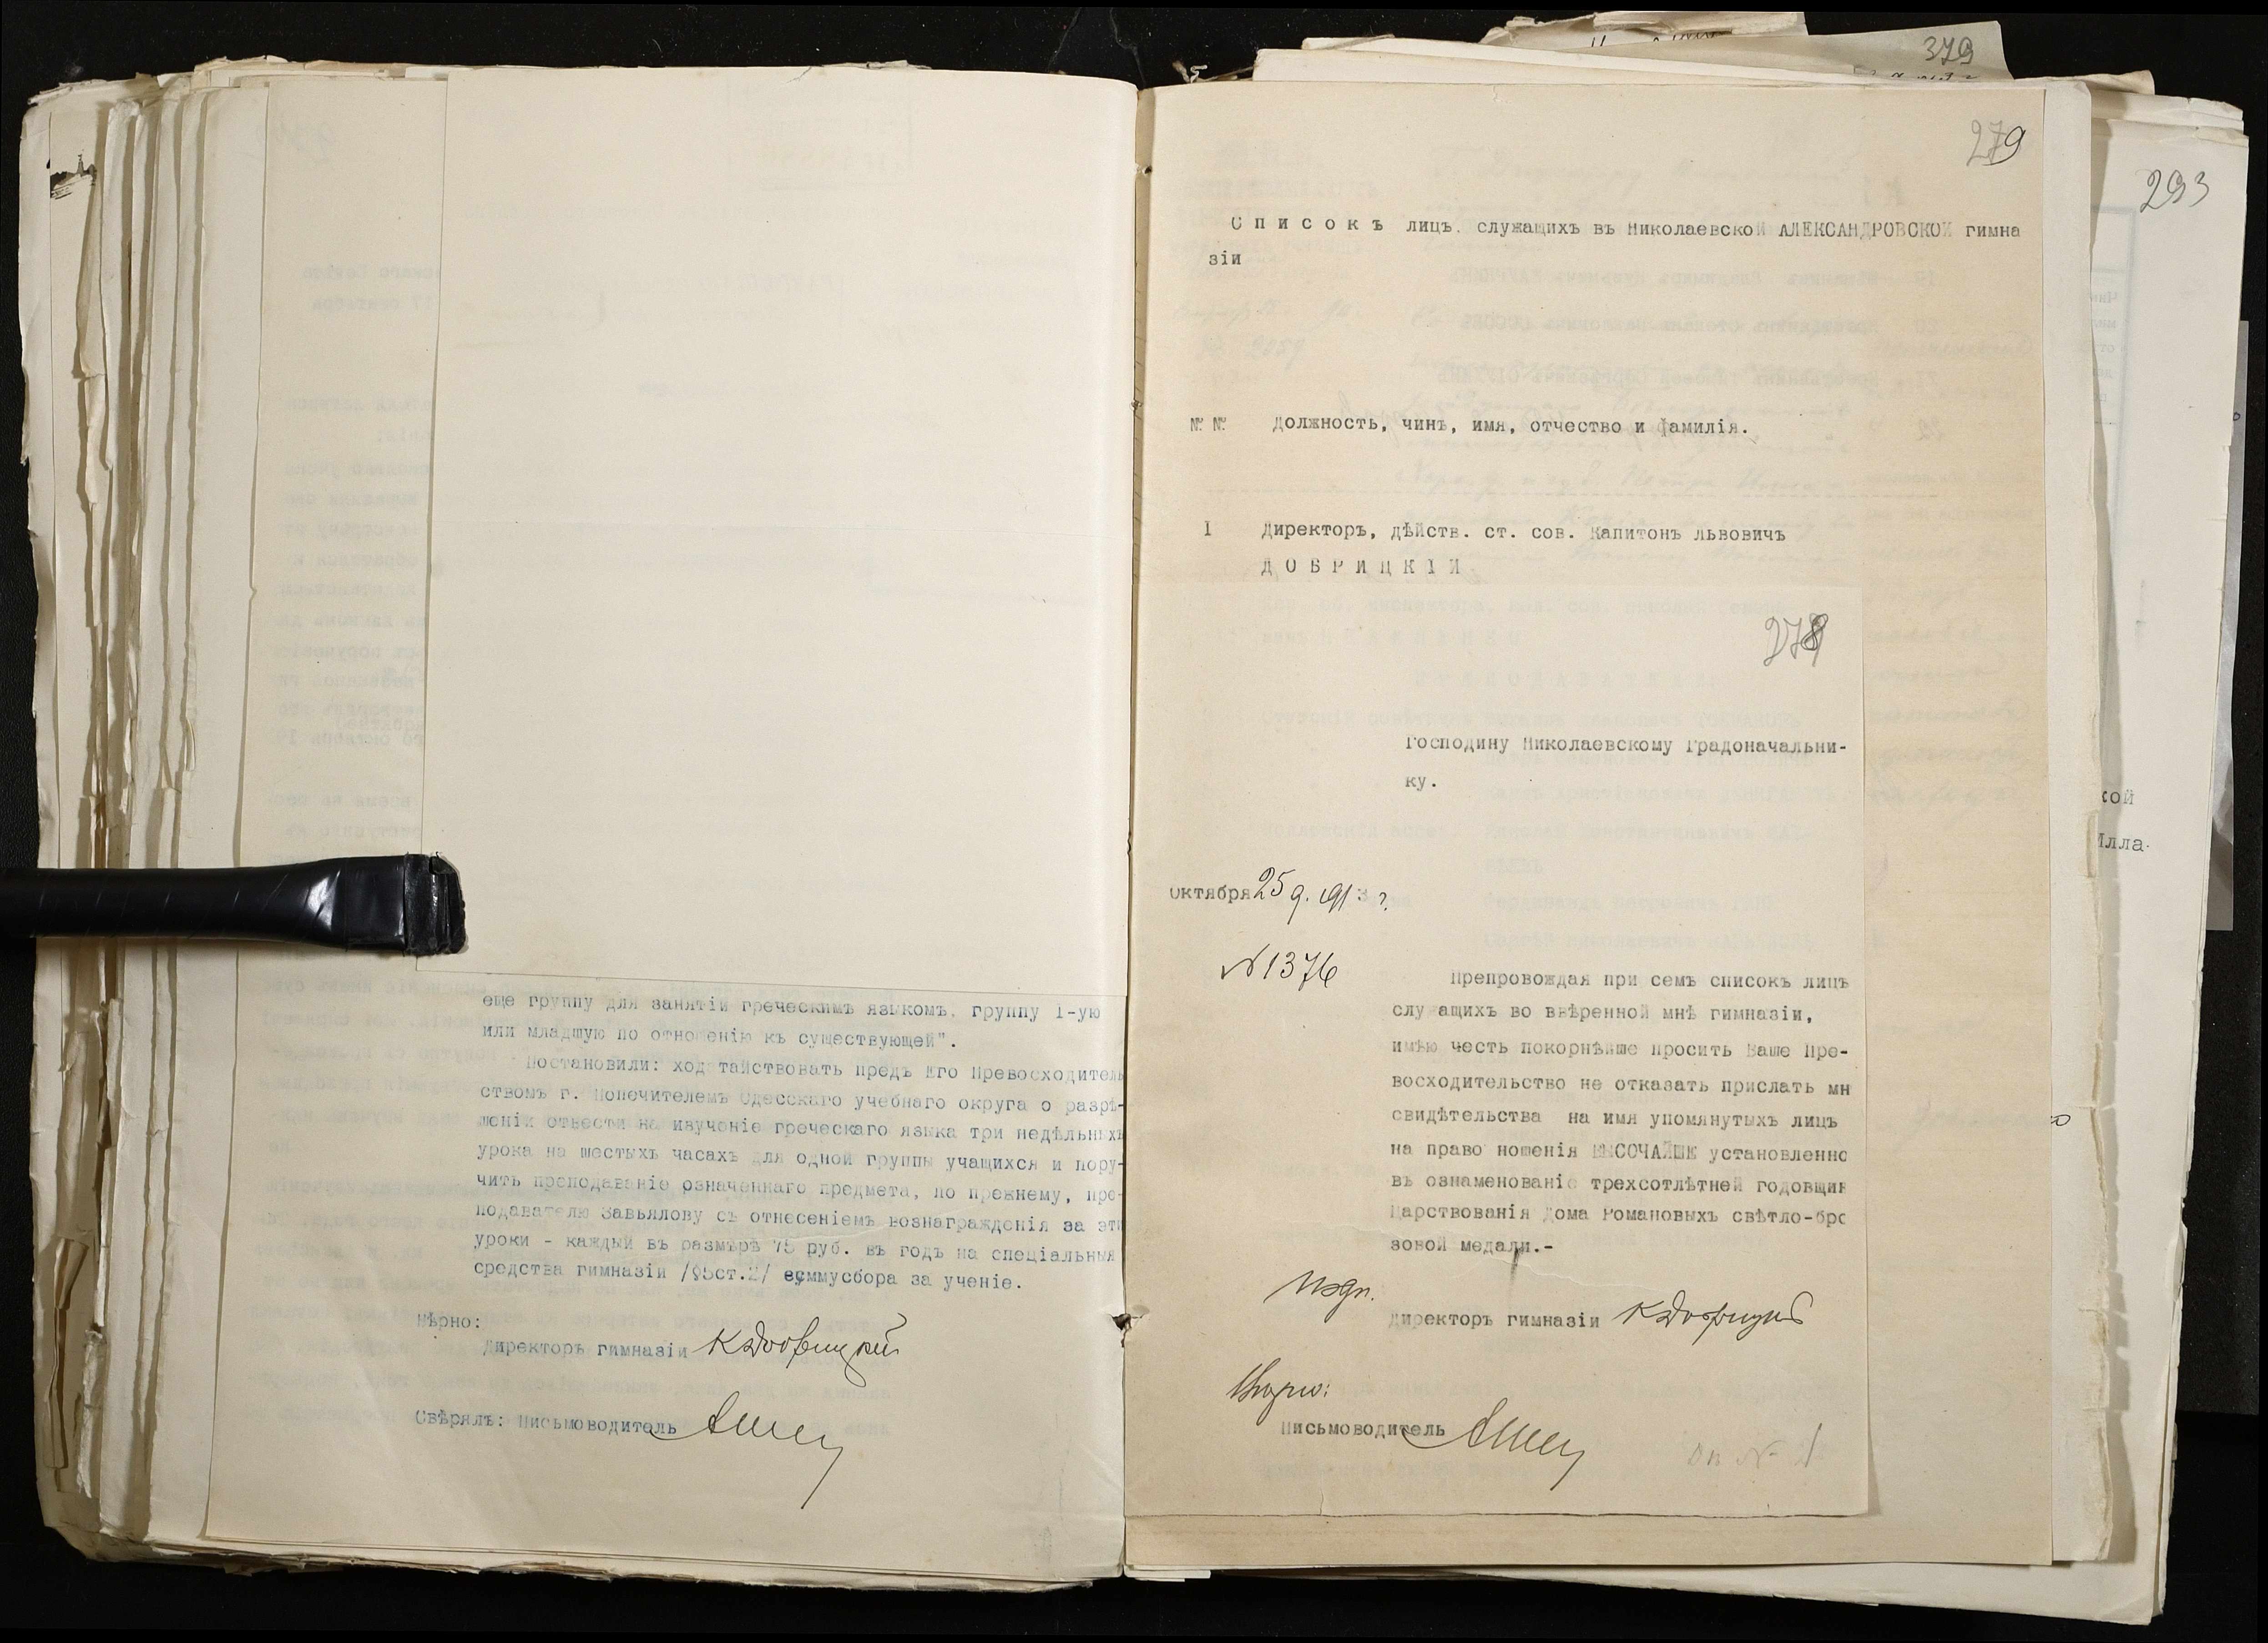 еще группу для занятій греческимъ языкомъ, группу I-ую
или младшую по отношенію къ существующей".
Постановили: ходатайствовать предъ Его Превосходитель
ствомъ г. Попечителемъ Одесскаго учебнаго округа о разрѣ-
шеніи отвести на изученіе греческаго языка три недѣльныхъ
урока на шестыхъ часахъ для одной группы учащихся и пору-
чить преподаваніе означеннаго предмета, по прежнему, пре-
подавателю Завьялову съ отнесеніемъ вознагражденія за эти
уроки - каждый въ размѣрѣ 75 руб. въ годъ на спеціальныя
средства гимназіи /§5ст.2/ суммусбора за ученіе.
Вѣрно:
Директоръ гимназіи КДобрицкій
Свѣрялъ: Письмоводитель
379
279
293
Списокъ лицъ, служащихъ въ Николаевской АЛЕКСАНДРОВСКОЙ гимна
зіи
№ № Должность, чинъ, имя, отчество и фамилія.
I Директоръ, дѣйств. ст. сов. Капитонъ Львовичъ
ДОБРИЦКІЙ
278
Господину Николаевскому Градоначальни-
ку.
Октября 25 д. 1913 г.
№1376
Препровождая при семъ списокъ лицъ
служащихъ во ввѣренной мнѣ гимназіи,
имѣю честь покорнѣйше просить Ваше Пре-
восходительство не отказать прислать мн
свидѣтельства на имя упомянутыхъ лицъ
на право ношенія ВЫСОЧАЙШЕ установленно
въ ознаменованіе трехсотлѣтней годовщин
Царствованія Дома Романовыхъ свѣтло-бро
зовой медали.-
Подп.
Директоръ гимназіи КДобрицкій
Вѣрно:
Письмоводитель
кой
Илла-